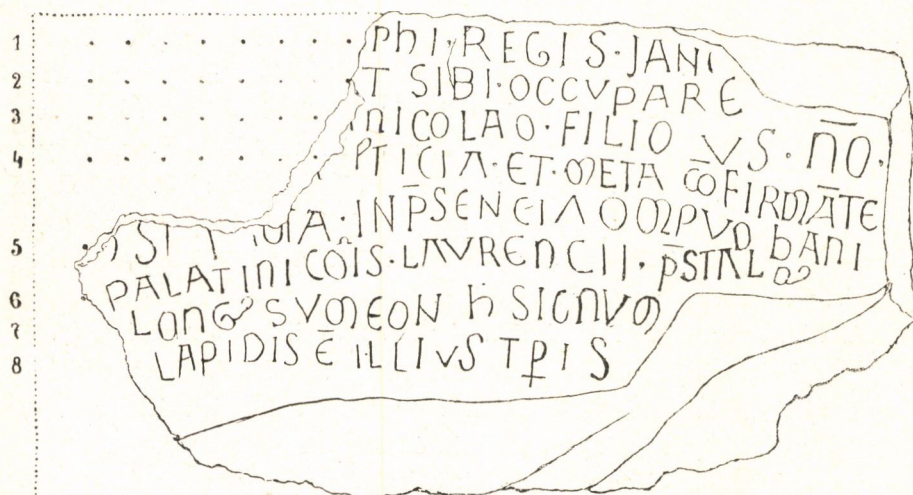 1 PHI · REGIS · JANI
2 T SIBI · OCCVPARE
3 NICOLAO · FILIO VS · N̄O ·
4 PTICIA · ET · META C̄OFIRMĀTE
5 IN P̄SENCIA BANI
6 PALATINI COIS · LAVRENCII · P̄STAL
7 LONG SVMEON h SIGNVM
8 LAPIDIS Ē ILLIVS TPIS